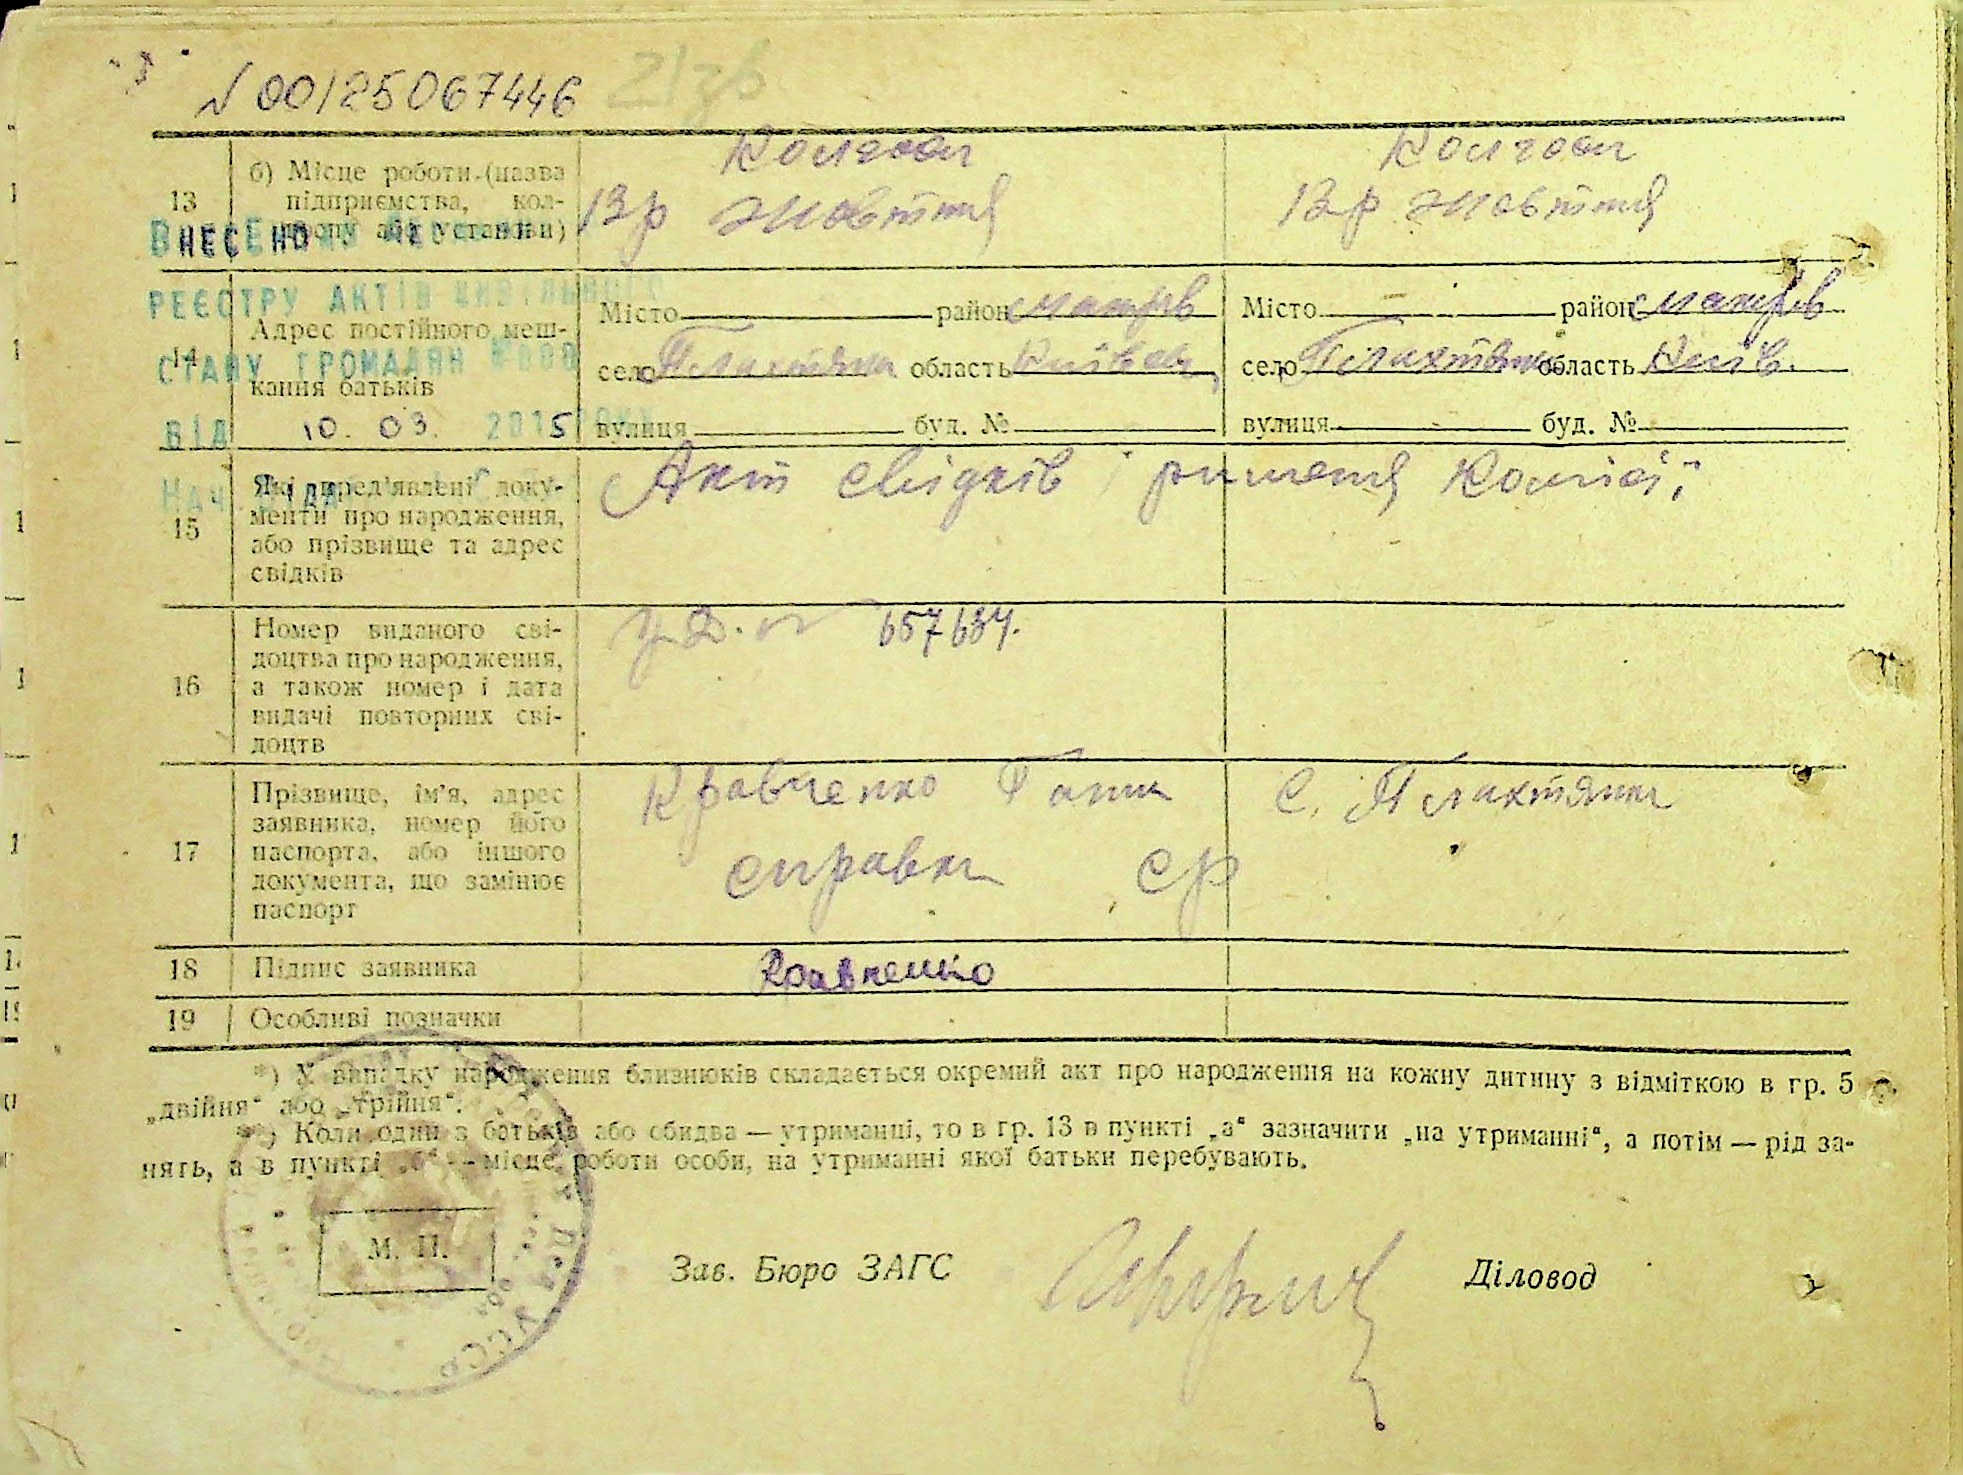 N 00125067446 21зв
13
б) Місце роботи (назва
підприємства, кол-
госпу або установи)
Колгосп
13 р Жовтня
Колгосп
13 р Жовтня
ВНЕСЕНО
РЕЄСТРУ АКТІВ ЦИВІЛЬНОГО
СТАНУ ГРОМАДЯН
ВІД 10. 03. 2015 РОКУ
14
Адрес постійного меш-
кання батьків
Місто район Макарів
село Плахтянка область Київська
вулиця буд. №
Місто — район Макарів
село Плахтянка область Київ.
вулиця буд. №
15
Які пред'явлені доку-
менти про народження,
або прізвище та адрес
свідків
Акт свідків і рішення комісії
16
Номер виданого сві-
доцтва про народження,
а також номер і дата
видачі повторних сві-
доцтв
657634.
17
Прізвище, ім'я, адрес
заявника, номер його
паспорта, або іншого
документа, що замінює
паспорт
Кравченко Ганна с. Плахтянка
справка ср
18 Підпис заявника Кравченко
19 Особливі позначки
*) У випадку народження близнюків складається окремий акт про народження на кожну дитину з відміткою в гр. 5
„двійня" або „трійня".
**) Коли один з батьків або обидва — утриманці, то в гр. 13 в пункті „а" зазначити „на утриманні", а потім — рід за-
нять, а в пункті „б" — місце роботи особи, на утриманні якої батьки перебувають.
М. П.
Зав. Бюро ЗАГС Діловод